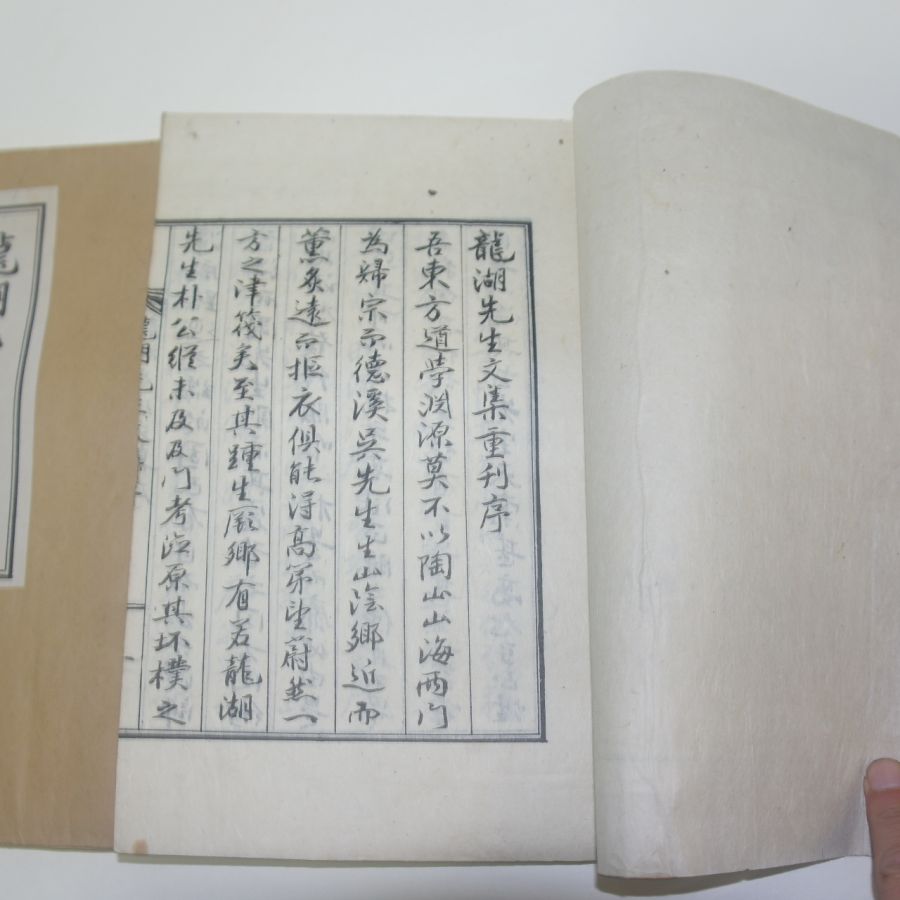 龍湖先生文集重刋序
吾東方道學淵源莫不以陶山山海兩門
為歸宗而德溪吳先生生山陰鄉近而
薰炙遠而摳衣俱能得高弟望蔚然一
方之津筏矣至其踵生厥鄉有若龍湖
先生朴公縱未及及門考述原其坏樸之
龍湖